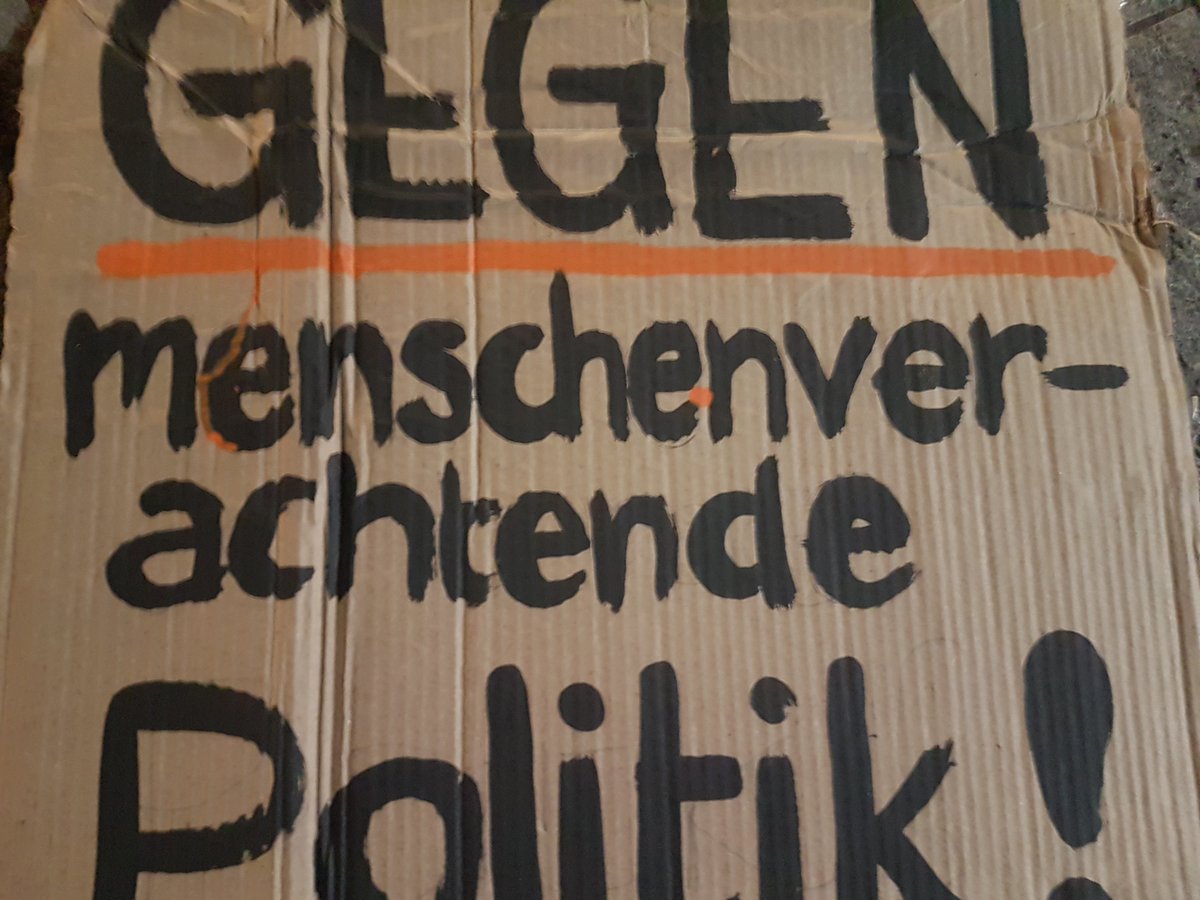 GEGEN
menschenver-
achtende
Politik!